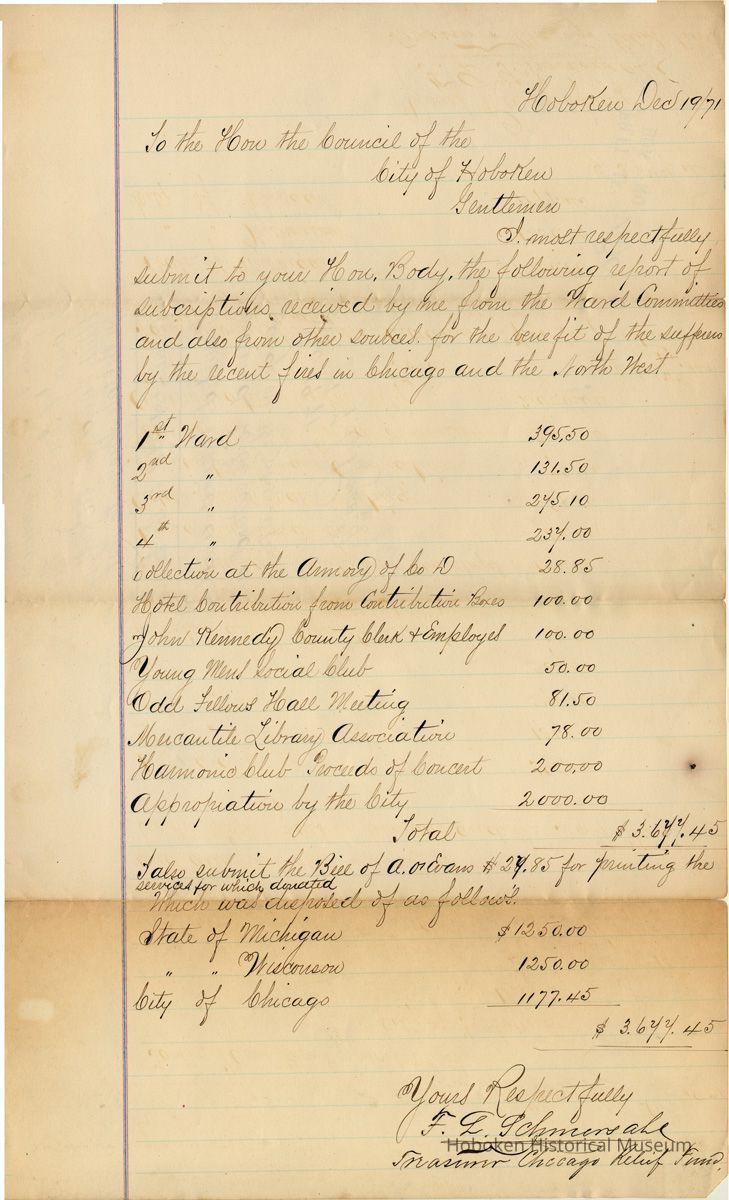 Hoboken Dec 19/71
To the Hon the Council of the
City of Hoboken
Gentlemen
I. most respectfully
submit to your Hon. Body, the following report of
subscriptions received by me from the Ward Committies
and also from other sources. for the benefit of the sufferers
by the recent fires in Chicago and the North West
1st Ward 395.50
2nd " 131.50
3rd " 275.10
4th " 237.00
Collection at the Armory of Co D 28.85
Hotel Contribution from Contribution Boxes 100.00
John Kennedy County Clerk & Employes 100.00
Young Mens Social Club 50.00
Odd Fellows Hall Meeting 81.50
Mercantile Library Association 78.00
Harmonic Club Proceeds of Concert 200.00
Appropiation by the City 2000.00
Total $3.677.45
I also submit the Bill of A. O. Evans $27.85 for printing the
services for which donated
Which was disposed of as follows.
State of Michigan $1250.00
" " Wisconson 1250.00
City of Chicago 1177.45
$3.677.45
Yours Respectfully
F. L. Schmersahl
Treasurer Chicago Relief Fund.
Hoboken Historical Museum